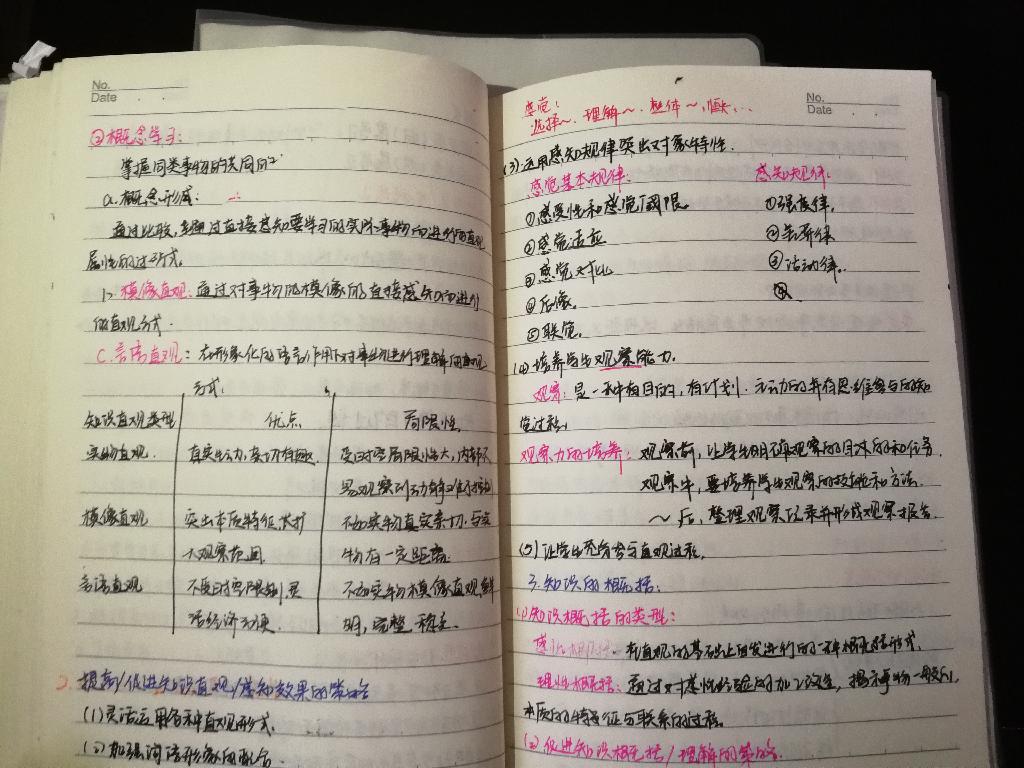 No.
Date
②概念学习:
掌握同类事物的共同的
a.概念形成:
通过比较,通过直接感知要学习的实际事物而进行的直观
属性的过方式.
b.模像直观:通过对事物的模像的直接感知而进行
的直观方式.
c.言语直观:在形象化的语言作用下对事物进行理解的直观
方式.
知识直观类型 优点 局限性.
实物直观. 真实生动,亲切有趣. 受时空局限性大,内部不
易观察到
模像直观 突出本质特征,扩 不如实物真实亲切,与实
大观察范围. 物有一定距离.
言语直观 不受时空限制,灵 不如实物模像直观,鲜
活经济方便. 明,完整 稳定.
2.提高/促进知识直观/感知效果的策略
(1)灵活运用各种直观形式.
(2)加强词语形象的配合.
No.
Date
感觉:
选择~. 理解~. 整体~,恒~...
(3)运用感知规律突出对象特性.
感觉基本规律: 感知规律:
①感受性和感觉阈限. ①强度律,
②感觉适应 ②差异律
③感觉对比 ③活动律.
④后像. ④
⑤联觉.
(4)培养学生观察能力.
观察:是一种有目的,有计划.主动的并有思维参与的知
觉过程.
观察力的培养:观察前,让学生明确观察的目的和任务.
观察中,要培养学生观察的技能和方法.
~后,整理观察记录并形成观察报告.
(5)让学生充分参与直观过程.
3.知识的概括:
(1)知识概括的类型:
感性概括.在直观的基础上自发进行的一种概括形式.
理性概括:通过对感性经验的加工改造,揭示事物一般的,
本质的特征与联系的过程.
(2)促进知识概括/理解的策略.